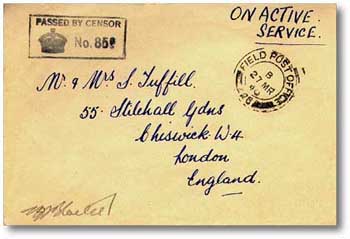 PASSED BY CENSOR
No. 859
ON ACTIVE
SERVICE.
FIELD POST OFFICE
B
27 MR
40
Mr. & Mrs S. Tuffill,
55. Stilehall Gdns
Chiswick W4
London
England.